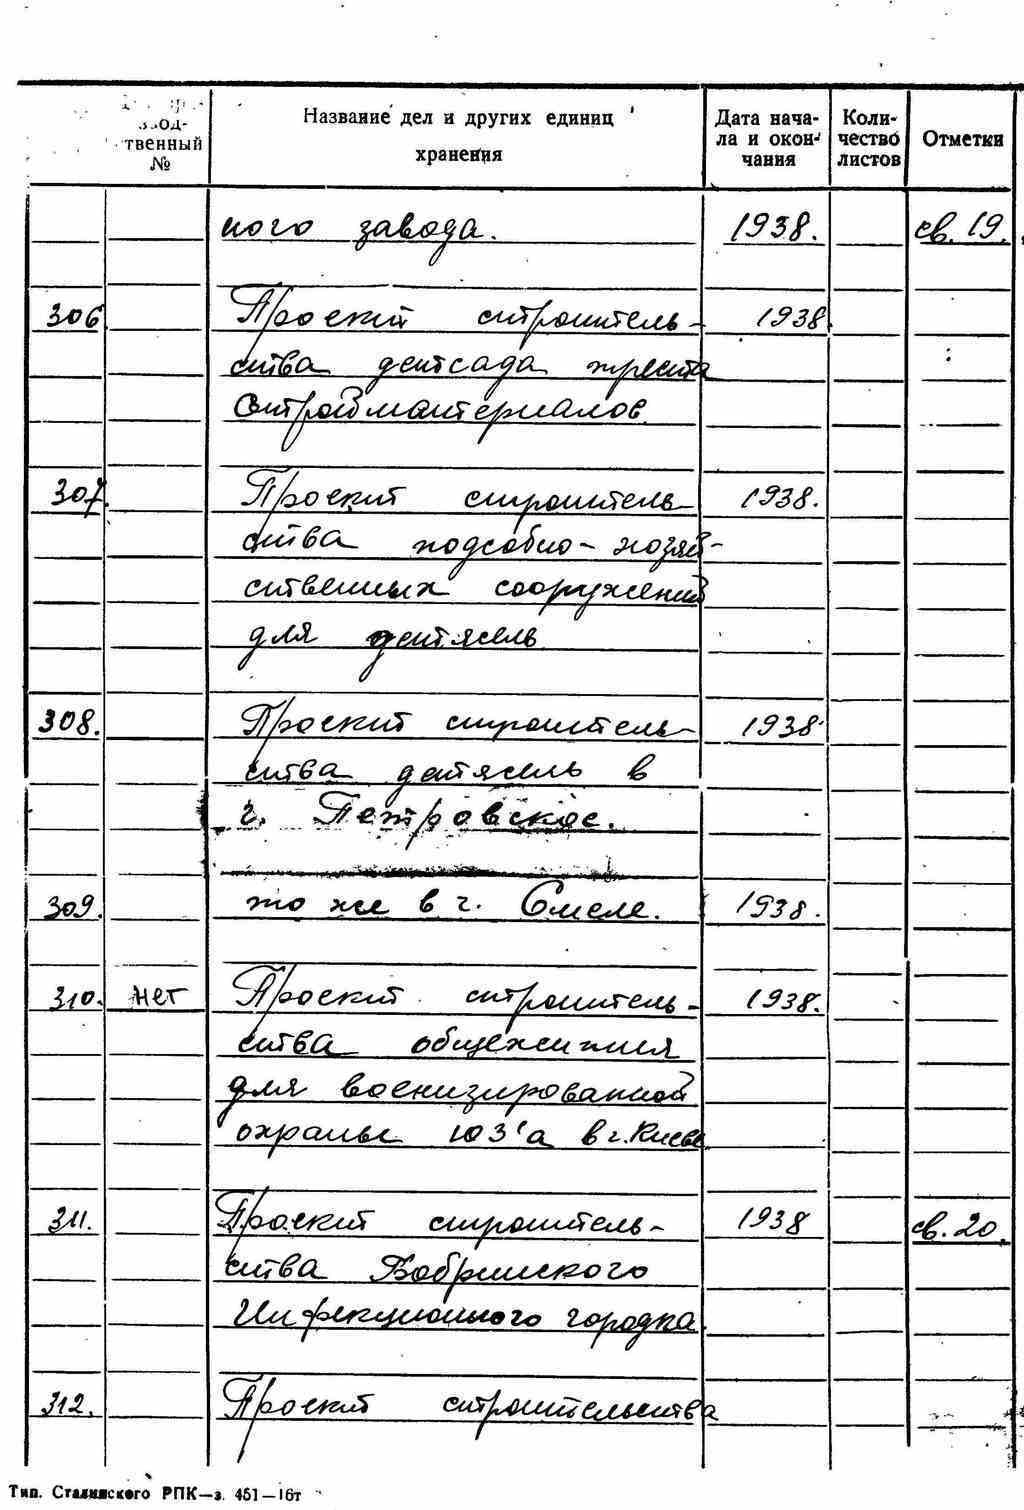 зод-
твенный
№
Название дел и других единиц
хранения
Дата нача-
ла и окон-
чания
Коли-
чество
листов
Отметки
ного завода. 1938. св. 19.
306 Проект строитель- 1938
ства детсада треста
Стройматериалов
307. Проект строитель- 1938.
ства подсобно-хозяй-
ственных сооружений
для детясель
308. Проект строитель- 1938
ства детясель в
г. Петровске.
309. то же в г. Смеле. 1938.
310. нет Проект строитель- 1938.
ства общежития
для военизированной
охраны ЮЗ'а в г. Киеве
311. Проект строитель- 1938 св. 20.
ства Бобринского
Инфекционного городка.
312. Проект строительства
Тип. Сталинского РПК—з. 451—16т